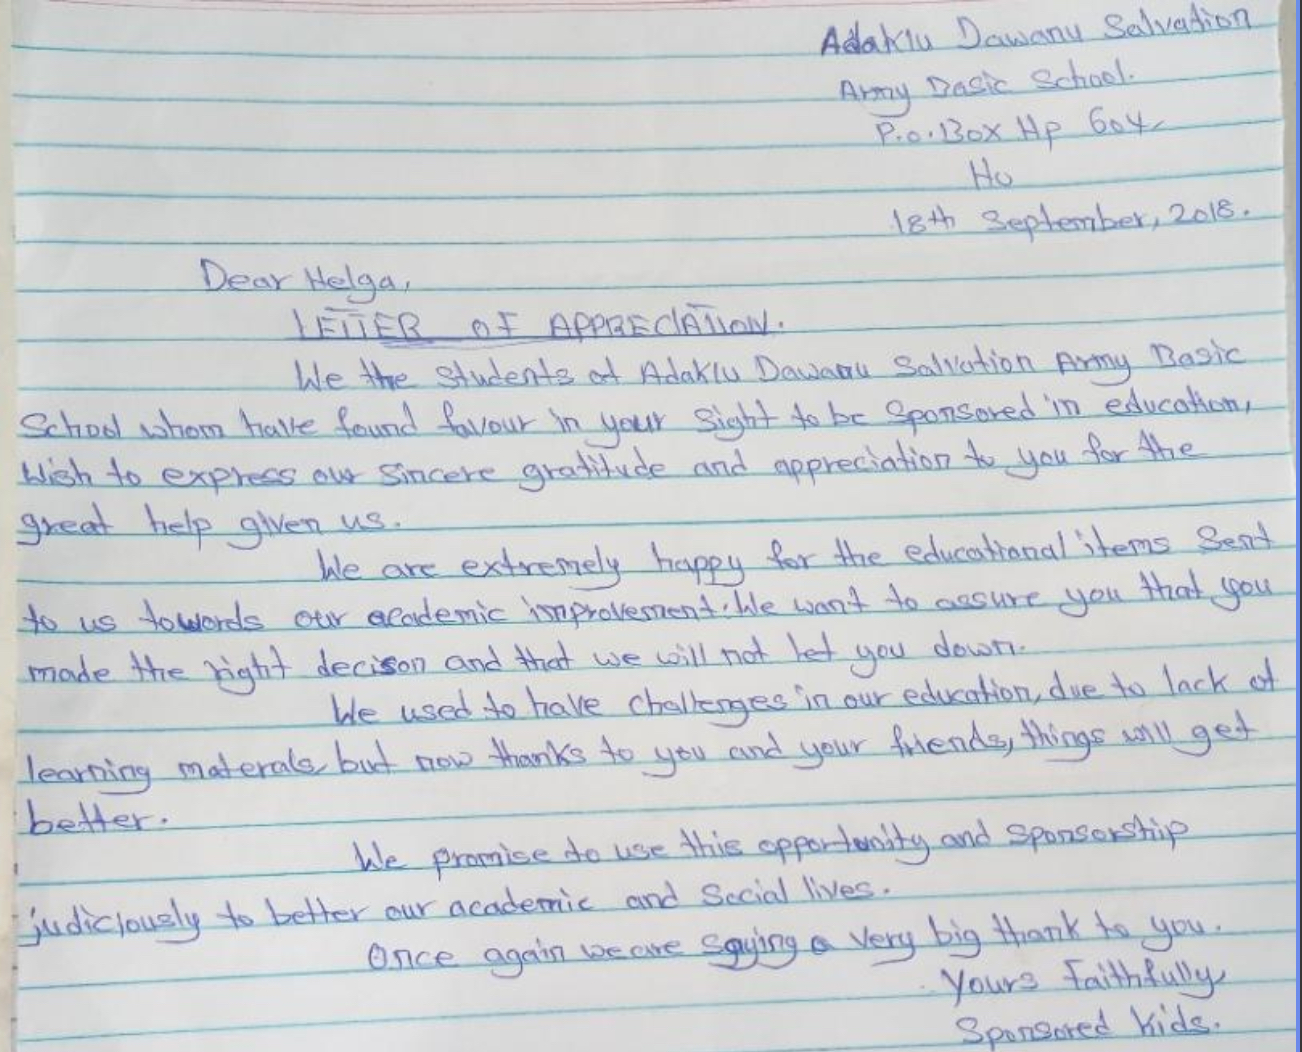 Adaklu Dawanu Salvation
Army Basic School.
P.O. Box Hp 604
Ho
18th September, 2018.
Dear Helga,
LETTER OF APPRECIATION.
We the students of Adaklu Dawanu Salvation Army Basic
School whom have found favour in your sight to be sponsored in education,
wish to express our sincere gratitude and appreciation to you for the
great help given us.
We are extremely happy for the educational items sent
to us towards our academic improvement. We want to assure you that you
made the right decison and that we will not let you down.
We used to have challenges in our education, due to lack of
learning materals, but now thanks to you and your friends, things will get
better.
We promise to use this opportunity and sponsorship
judiciously to better our academic and social lives.
Once again we are saying a very big thank to you.
Yours faithfully
Sponsored kids.